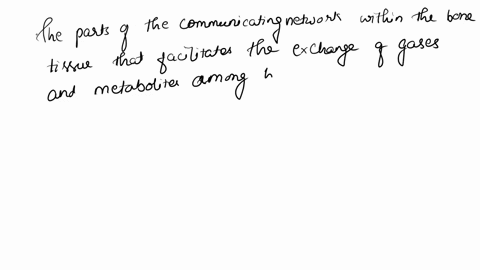 The parts of the communicating network within the bone
tissue that facilitates the exchange of gases
and metabolites among